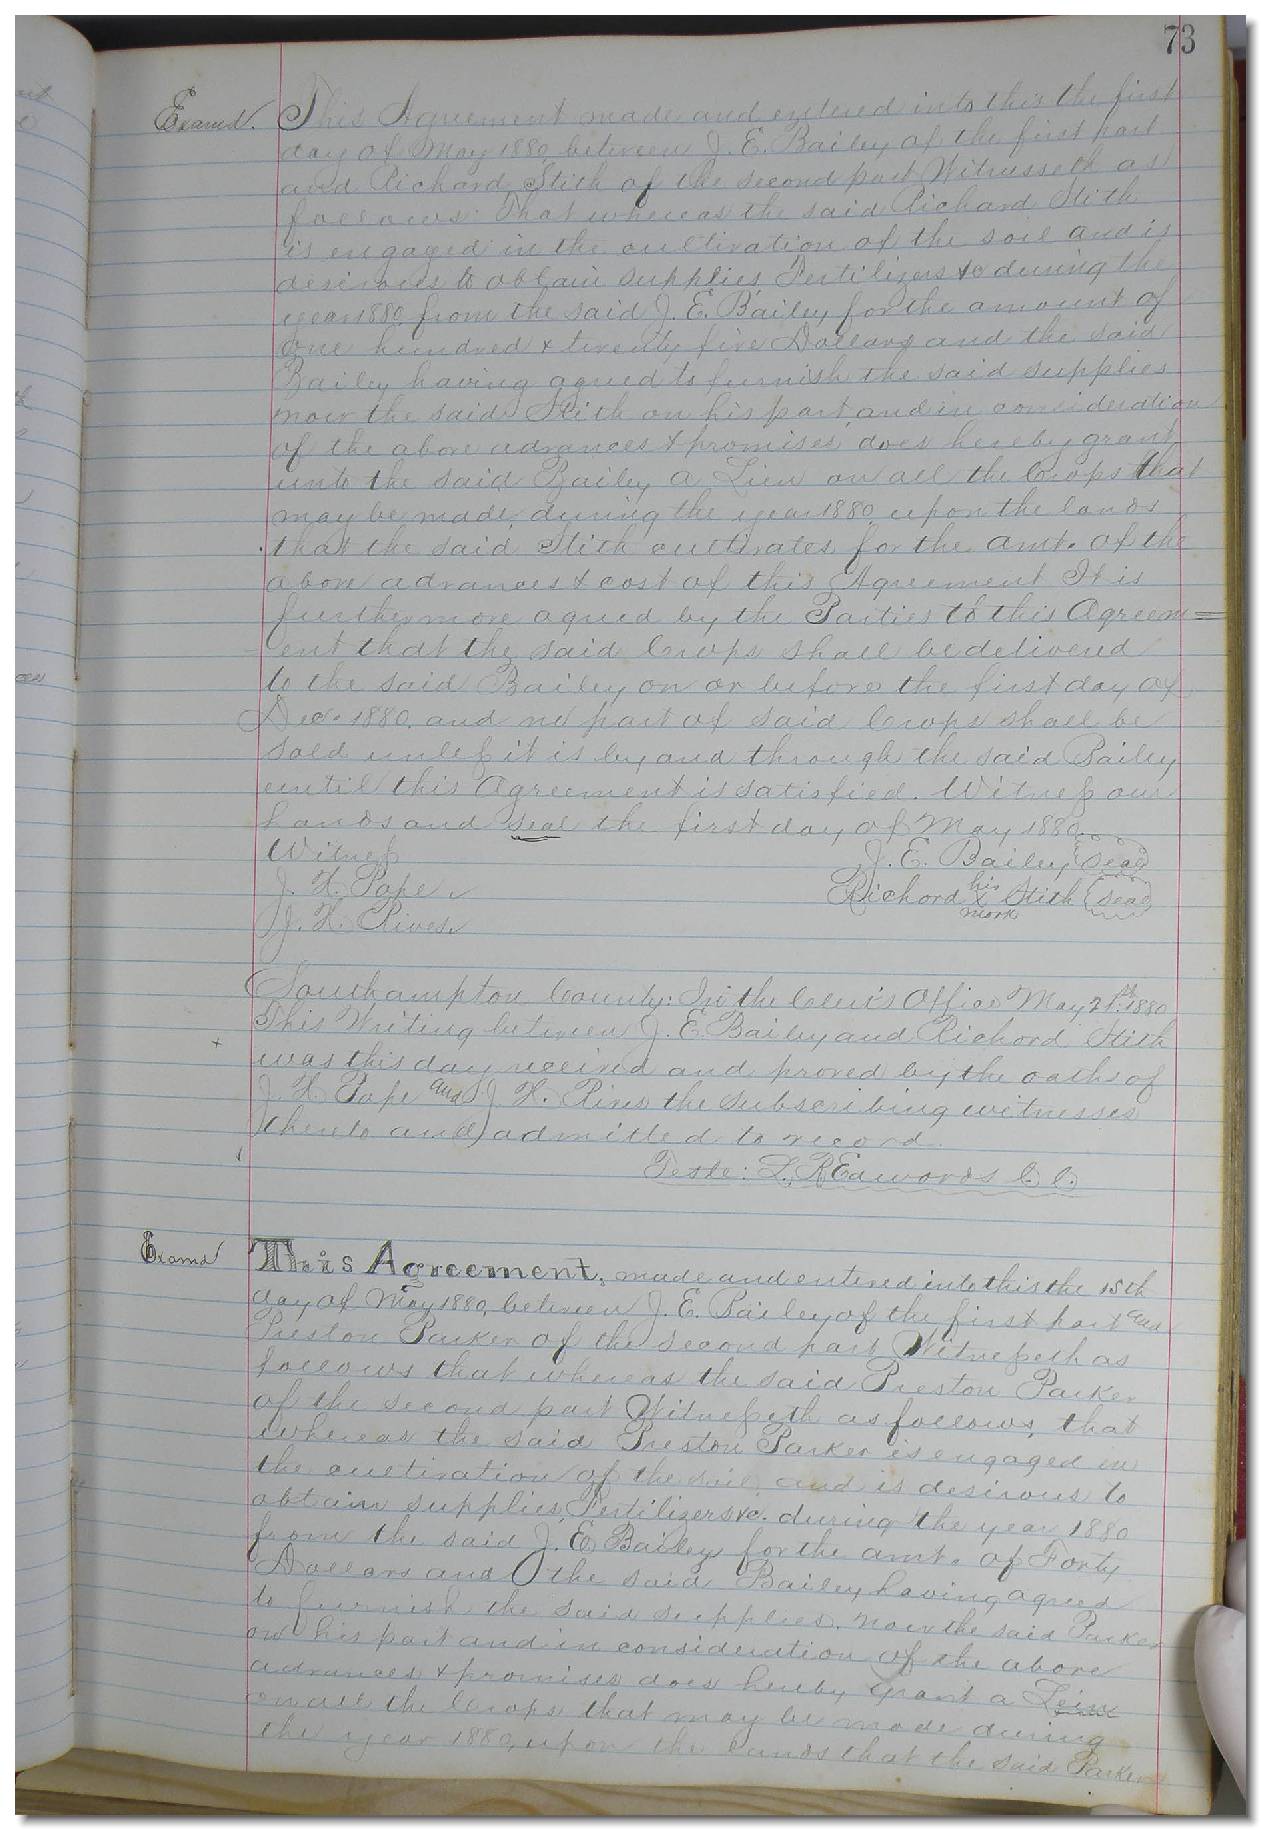 73
Examd. This Agreement made and entered into this the first
day of May 1880, between J. E. Bailey of the first part
and Richard Stith of the second part Witnesseth as
follows: That whereas the said Richard Stith
is engaged in the cultivation of the soil and is
desirous to obtain supplies, Fertilizers &c during the
year 1880 from the said J. E. Bailey for the amount of
One hundred & twenty five Dollars and the said
Bailey having agreed to furnish the said supplies
now the said Stith on his part and in consideration
of the above advances & promises, does hereby grant
unto the said Bailey a Lien on all the Crops that
may be made during the year 1880 upon the lands
that the said Stith cultivates for the amt. of the
above advances & cost of this Agreement It is
furthermore agreed by the Parties to this Agreem=
ent that the said Crops shall be delivered
to the said Bailey on or before the first day of
Dec. 1880. and no part of said Crops shall be
sold unless it is by and through the said Bailey
until this Agreement is satisfied. Witness our
hands and seal the first day of May 1880
Witness J. E. Bailey (Seal)
J. H. Pope Richard his x mark Stith (Seal)
J. H. Rives
Southampton County: In the Clerk's Office May 21st. 1880
This Writing between J. E. Bailey and Richard Stith
was this day received and proved by the oaths of
J. H. Pope and J. H. Rives the subscribing witnesses
thereto and admitted to record.
Teste: L. R. Edwards C. C.
Examd This Agreement, made and entered into this the 15th
day of May 1880, between J. E. Bailey of the first part and
Preston Parker of the second part Witnesseth as
follows that whereas the said Preston Parker
of the second part Witnesseth as follows, that
whereas the said Preston Parker is engaged in
the cultivation of the soil and is desirous to
obtain supplies, Fertilizers &c. during the year 1880
from the said J. E. Bailey for the amt. of Forty
Dollars and the said Bailey having agreed
to furnish the said supplies. Now the said Parker
on his part and in consideration of the above
advances & promises does hereby grant a Lein
on all the Crops that may be made during
the year 1880, upon the lands that the said Parker